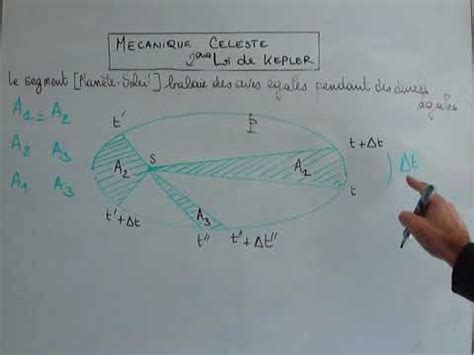 MECANIQUE CELESTE
2ème Loi de KEPLER
Le segment [Planète-Soleil] balaie des aires égales pendant des durées
égales
A1 = A2
A2 A3
A1 A3
t'
P
t+Δt
A2
S
A1
Δt
t
t'+Δt
A3
t"
t"+Δt"